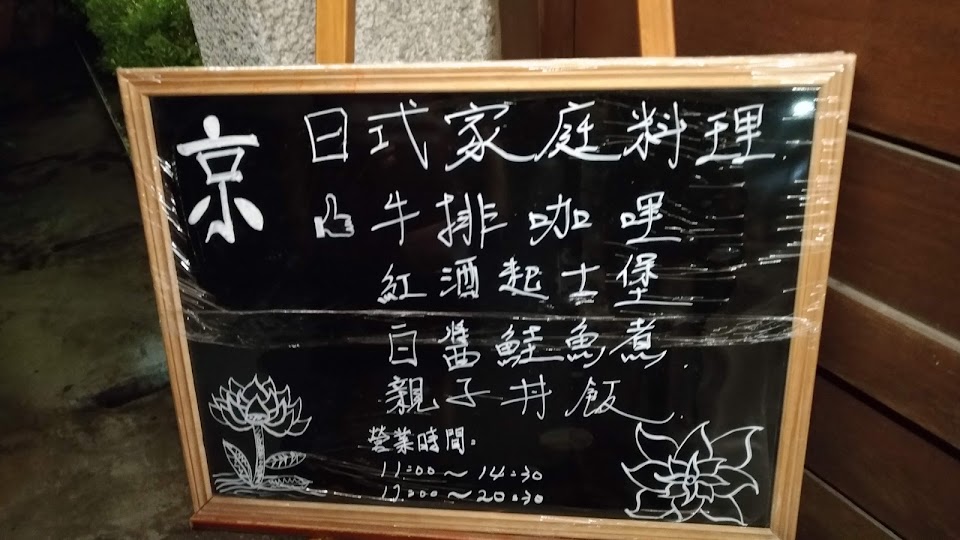 京
日式家庭料理
牛排咖哩
紅酒起士堡
白醬鮭魚煮
親子丼飯
營業時間:
11:00~14:30
17:00~20:30